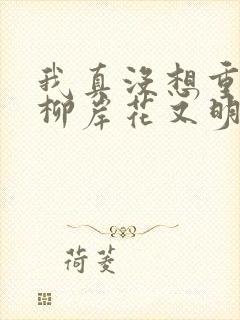 我真没想重
柳岸花又明
荷菱